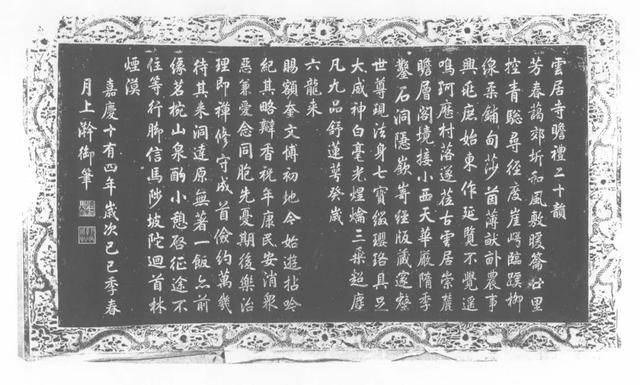 雲居寺瞻禮二十韻
芳春藹郊圻和風敷暖籥廿里
控青驄尋徑度崖崿臨蹊柳
線柔鋪甸莎茵薄猷訃農事
興疪庶始東作延覽不覺遙
鳴珂應村落遂莅古雲居崇麓
瞻層閣境接小西天華嚴隋季
鑿石洞隱嶔嵜經版藏邃壑
世尊現法身七寶綴瓔珞具足
大威神白毫光煜爚三乘超塵
凡九品舒蓮萼癸歲
六龍來
賜額奎文博初地今始遊拈吟
紀其略瓣香祝年康民安消眾
惡兼愛念同胞先憂期後樂治
理即禪修守成首儉約萬幾
待其來洞達原無著一飯亡前
緣茗椀山泉酌小憩啟征途不
住等行腳信馬陟坡陀迴首林
煙漠
嘉慶十有四年歲次己巳季春
月上澣御筆